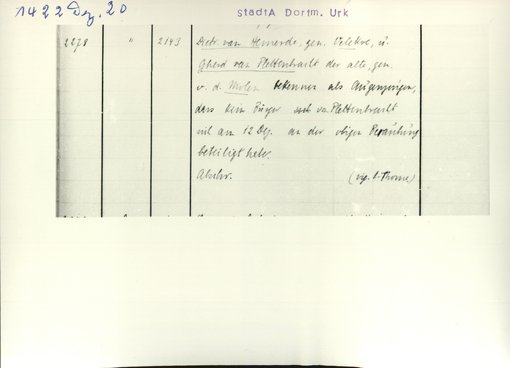 1422 Dez. 20
StadtA Dortm. Urk
2278 " 2143 Dietr. van Hemerde, gen. Velekoe, u.
Gherd van Plettenbracht der alte, gen.
v. d. Molen bekennen als Augenzeugen,
dass kein Bürger von Plettenbracht
mit am 12 Dez. an der obigen Beraubung
beteiligt habe.
Abschr. (vig. S. Thome)